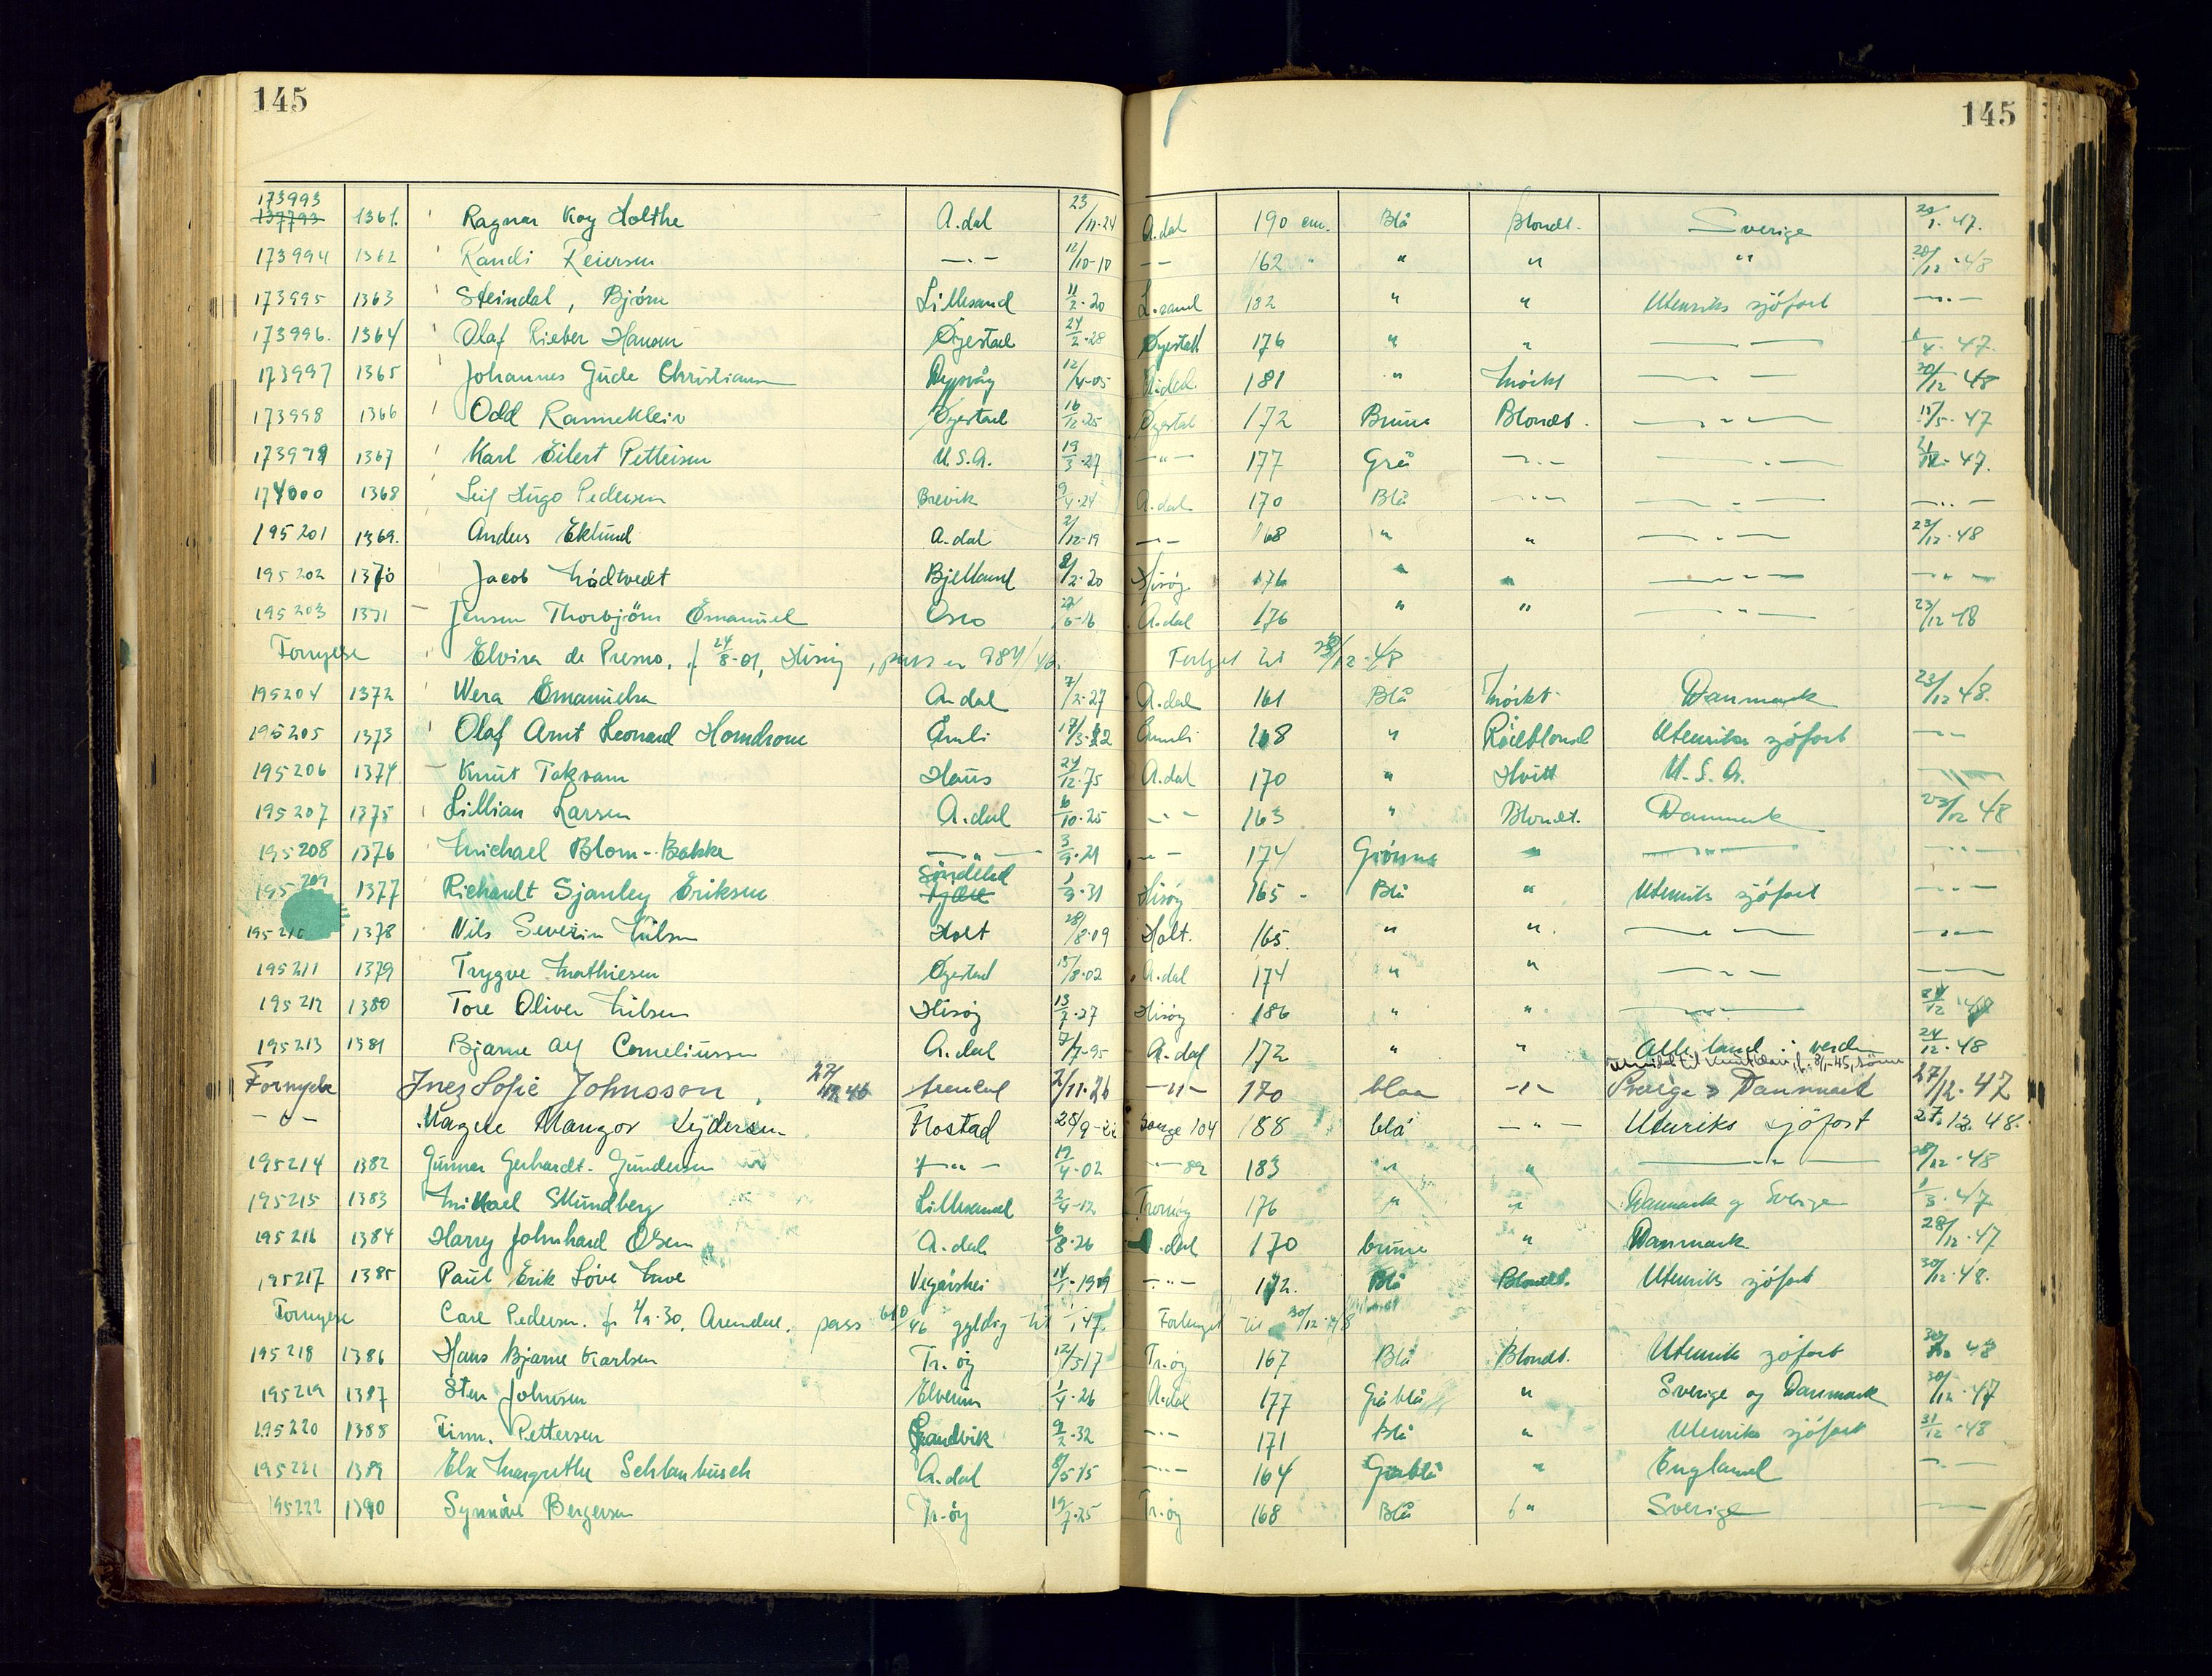 145 145
173993
137793 1361. Ragnar Kay Holthe A.dal 23/11-24 A.dal 190 cm. Blå Blondt. Sverige 20/1.47.
173994 1362 Randi Reiersen —〃— 12/10-10 —〃— 162 〃 〃 〃 〃 20/12-48
173995 1363 Steindal, Bjørn Lillesand 11/2.20 L.sand 182 〃 〃 Utenriks sjöfart —〃—
173996. 1364 Olaf Rieber Hansen Øyestad 24/2.28 Øyestad 176 〃 〃 —〃— 4.47.
173997 1365 Johannes Gude Christiansen Dypvåg 12/4-05 A.dal. 181 〃 Mörkt —〃— 20/12 48
173998 1366 Odd Ramnekleiv Øyestad 16/12.25 Øyestad 172 Brune Blondt. —〃— 15/5.47
173999 1367 Karl Eilert Pettersen U.S.A. 19/3.27 —〃— 177 Grå —〃— —〃— 47.
174000 1368 Leif Hugo Pedersen Brevik 9/4.24 A.dal 170 Blå —〃— —〃— —〃—
195201 1369. Anders Eklund A.dal 2/12-19 —〃— 168 〃 〃 —〃— 23/12.48
195202 1370 Jacob Mødtvedt Bjelland 8/2.20 Hisöy. 176 〃 〃 —〃— —〃—
195203 1371 Jensen Thorbjörn Emanuel Oslo 6-16 A.dal 176 〃 〃 —〃— 23/12 48
Fornyelse Elvira de Presno, f 24/8-01, Hisöy, pass nr 984/46. Forlenget til 23/12.48
195204 1372 Wera Emanuelsen A.dal 7/2-27 A.dal 161 Blå Mörkt Danmark 23/12 48.
195205 1373 Olaf Arnt Leonard Homdrom Åmli 17/3.22 Åmli 168 〃 Rödblond Utenriks sjöfart —〃—
195206 1374. Knut Takvam Haus 24/12.75 A.dal 170 〃 Hvitt U.S.A. —〃—
195207 1375 Lillian Larsen A.dal 6/10.25 —〃— 163 〃 Blondt. Danmark 23/12 48
195208 1376 Michael Blom-Bakke —〃— 3/9.21 —〃— 174 Grönne 〃 —〃— —〃—
195209 1377 Richardt Sjanley Eriksen Söndeled 1/9.31 Hisöy 165 - Blå 〃 Utenriks sjöfart —〃—
195210 1378 Nils Severin Nilsen Holt 28/8.09 Holt. 165. 〃 〃. —〃— —〃—
195211 1379 Trygve Mathiesen Øyestad 15/8.02 A.dal 174 〃 〃 —〃— —〃—
195212 1380 Tore Oliver Nilsen Hisöy 13/7.27 Hisöy 186 〃 〃 —〃— 12 48
195213 1381 Bjarne Alf Corneliussen A.dal 7/7-95 A.dal 172 〃 〃 Alle land i verden 24/12.48
Fornyelse Inez Sofie Johnsson, 27/12 46 Arendal 2/11.26 —〃— 170 blaa —〃— Sverige Danmark 27/12.47
-〃- Magne Mangor Flostad 25/9-22 Songe 104 188 blå —〃— Utenriks sjöfart 27.12.48.
195214 1382 Gunnar Gerhardt Gundersen —〃— 19/4.02 —〃— 89 183 〃 〃 —〃— 28/12.48
195215 1383 Mikael Skundberg Lillesand 2/4-12 Tromöy 176 〃 〃 Danmark og Sverige 1/3.47
195216 1384 Harry Johnhard Olsen A.dal 6/8.26 A.dal 170 brune 〃 Danmark 28/12.47
195217 1385 Paul Erik Löve Vegårshei 14/1-1909 —〃— 172. Blå Blondt. Utenriks sjöfart 30/12.48.
Fornyelse Carl Pedersen. f. .30. Arendal. pass 610/46 gyldig til 47. Forlenget til 30/12.48
195218 1386 Hans Bjarne Karlsen Tr.öy 12/317 Tr.öy 167 Blå Blondt. Utenriks sjöfart 48
195219 1387 Sten Johnsen Elverum 1/4.26 A.dal 177 Gråblå 〃 Sverige og Danmark 30/12.47
195220 1388 Finn. Pettersen Sandvik 9/2.32 —〃— 171 Blå 〃 Utenriks sjöfart 31/12.48
195221 1389 Else Margrethe Schlanbusch A.dal 8/5 15 —〃— 164 Gråblå 〃 England —〃—
195222 1390 Synnöve Bergersen Tr.öy 19/7.25 Tr.öy 168 Blå 〃 Sverige —〃—